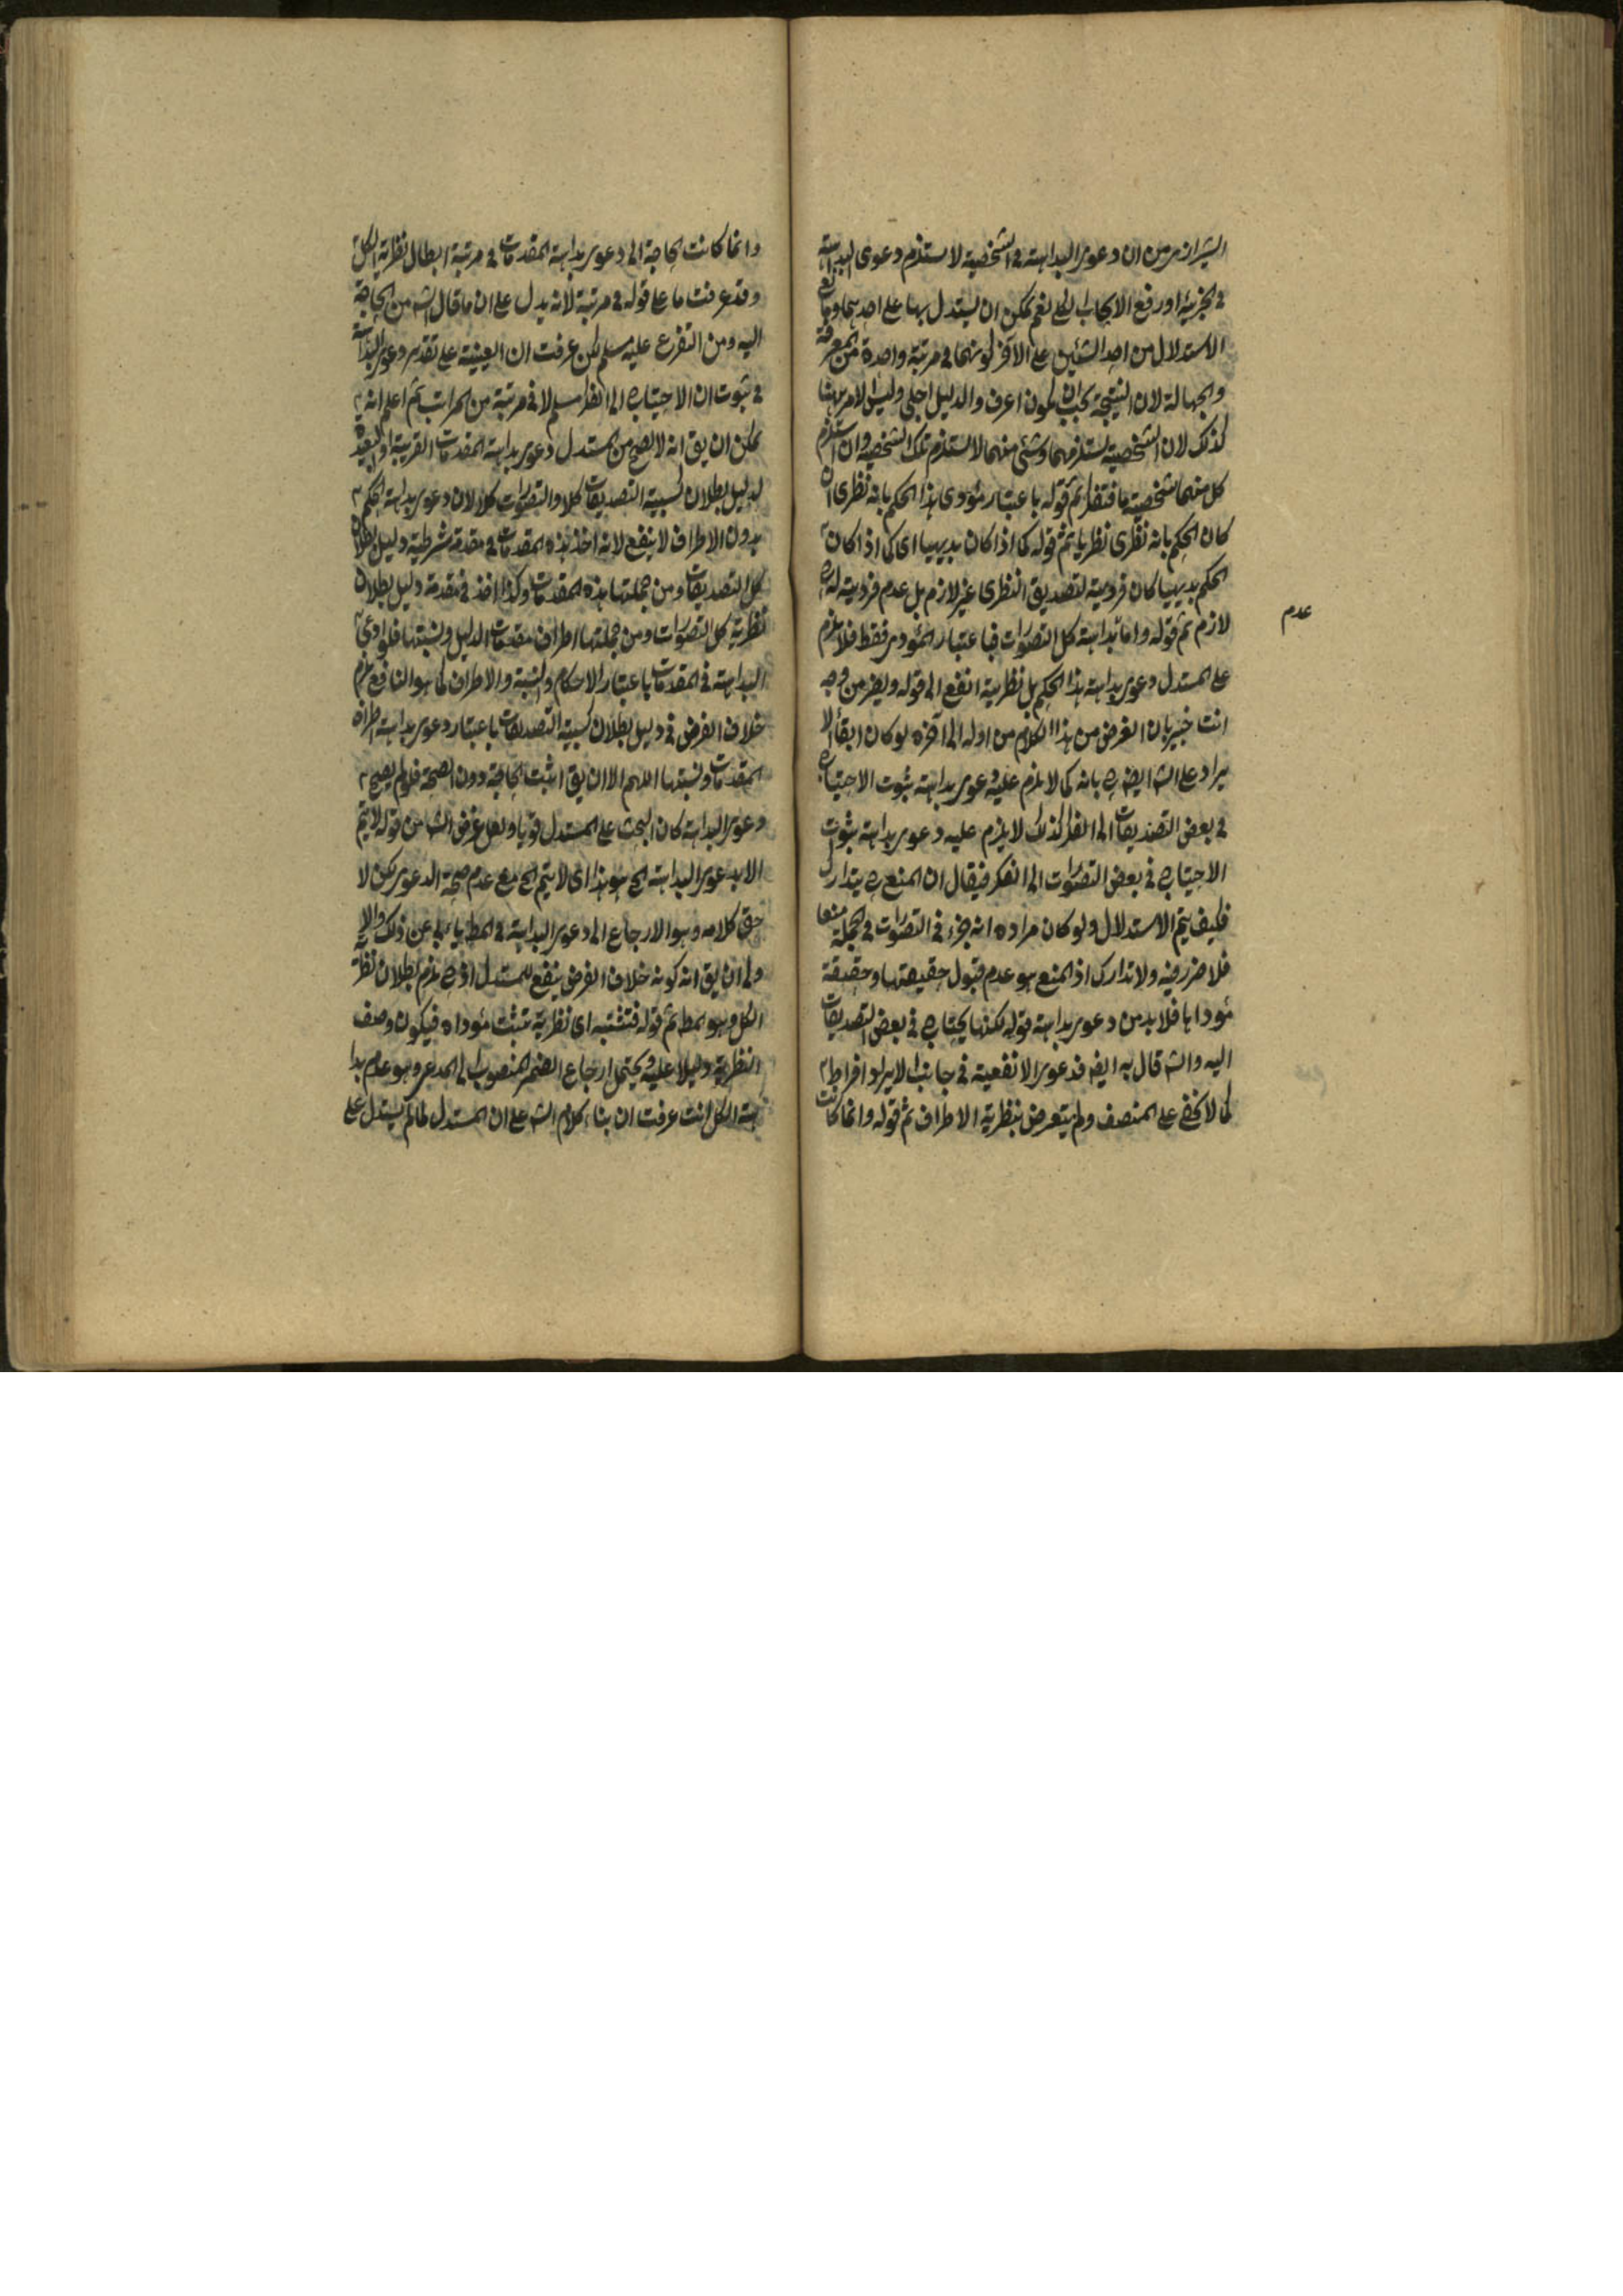 الشيرازي من ان دعوى البداهة في الشخصية لا يستلزم دعوى البداهة
في الجزئية او رفع الايجاب الكلي نعم يمكن ان يستدل بها على احدهما وما
الاستدلال من احد الشيئين على الاخر لو منهما في مرتبة واحدة من المعرفة
والجهالة لان النتيجة يجب ان يكون اعرف والدليل اجلى وليس الامر ههنا
كذلك لان الشخصية يستلزمهما وشئ منهما لا يستلزم تلك الشخصية وان استلزم
كل منهما شخصية ما فتفطن ثم قوله باعتبار مؤدى هذا الحكم بانه نظرى ان
كان الحكم بانه نظرى نظريا ثم قوله كما اذا كان بديهيا اى كما اذا كان
الحكم بديهيا كان فرديته لتصديق النظرى غير لازم بل عدم فرديته له
لازم ثم قوله واما بداهة كل التصورات فباعتبار المؤدى فقط فلا يلزم
عدم
على المستدل دعوى بداهة هذا الحكم بل نظريته انفع الى قوله ويضر من وجه
انت خبير بان الغرض من هذا الكلام من اوله الى آخره لو كان ابقاء الا
يراد على الشه ايضا يرد بانه كما لا يلزم عليه دعوى بداهة ثبوت الاحتياج
في بعض التصديقات الى الفكر كذلك لا يلزم عليه دعوى بداهة ثبوت
الاحتياج في بعض التصورات الى الفكر فيقال ان المنع ح يتدارك
فكيف يتم الاستدلال ولو كان مراده انه يجزء في التصورات في الجملة منعا
فلا ضرر فيه ولا تدارك اذ المنع هو عدم قبول حقيقتها وحقيقة
مؤداها فلا بد من دعوى بداهة قوله لكنها يحتاج في بعض التصديقات
اليه والشه قال به ايضا فدعوى الانفعية في جانب الايراد افراط
كما لا يخفى على المنصف ولم يتعرض بنظرية الاطراف ثم قوله وانما كانت
وانما كانت الحاجة الى دعوى بداهة المقدمات في مرتبة ابطال نظرية الكل
وقد عرفت ما على قوله في مرتبة لانه يدل على ان ما قال الشه من الحاجة
اليه ومن التفرع عليه مسلم لكن عرفت ان العينية على تقدير دعوى البداهة
في ثبوت ان الاحتياج الى النظر مسلم لا في مرتبة من المراتب ثم اعلم انه
يمكن ان يق انه لا يصح من المستدل دعوى بداهة المقدمات القريبة او البعيدة
لدليل بطلان كسبية التصديقات كلا والتصورات كلا لان دعوى بداهة الحكم
بدون الاطراف لا ينفع لانه اخذ هذه المقدمات في مقدمة شرطية دليل بطلان
كل التصديقات ومن جملتها هذه المقدمات وكذا اخذ في مقدمة دليل بطلان
نظرية كل التصورات ومن جملتها اطراف مقدمات الدليل ونسبتها فلو ادعى
البداهة في المقدمات باعتبار الاحكام والنسبة والاطراف كما هو النافع يلزم
خلاف الفرض في دليل بطلان كسبية التصديقات باعتبار دعوى بداهة اطراف
المقدمات ونسبتها اللهم الا ان يق اثبت الحاجة دون الصحة فلو لم يصح
دعوى البداهة كان البحث على المستدل قويا ولعل غرض الشه من قوله لا يتم
الا بدعوى البداهة الخ هو هذا اى لا يتم الخ مع عدم صحة الدعوى لكن لا
حق كلامه وهو الارجاع الى دعوى البداهة في المط يابى عن ذلك
ولى ان يق انه كونه خلاف الفرض ينفع للمستدل اذ ح يلزم بطلان نظرية
الكل وهو المط ثم قوله فتثبته اى نظريته تثبت مؤداه فيكون وصف
النظرية دليلا عليه ويحتمل ارجاع الضمير المنصوب الى المدعى وهو عدم بدا
هة الكل انت عرفت ان بناء كلام الشه على ان المستدل لما لم يستدل على